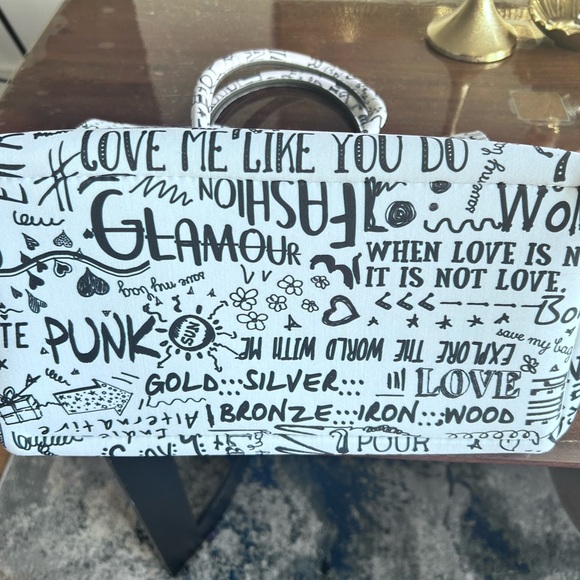 LOVE ME LIKE YOU DO
#
save my
FASHION
GLAMOUR
Wo
WHEN LOVE IS N
IT IS NOT LOVE.
save my bag
PUNK
SUN
EXPLORE THE WORLD WITH ME
Bo
save my bag
TE
GOLD...SILVER...
LOVE
BRONZE...IRON...WOOD
Alternative
POUR